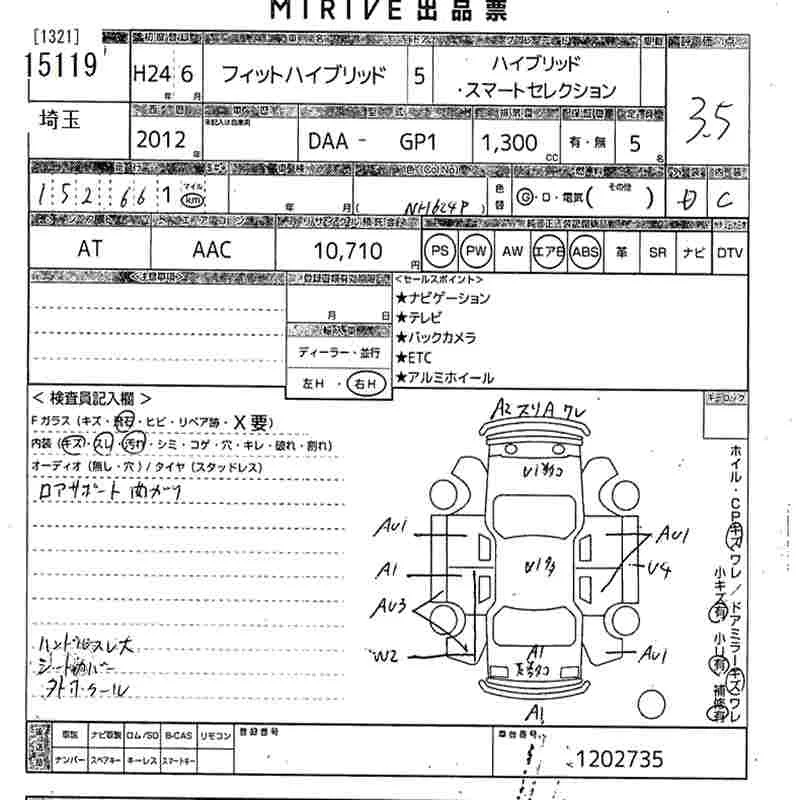 MIRIVE 出品票
[1321]
15119
H24 6 フィットハイブリッド 5 ハイブリッド
年 月
・スマートセレクション
評価 点
3.5
埼玉
2012 年
DAA - GP1
1,300 CC
有・無
5 名
152,661
マイル
km
年 月
NH624P
色替
G・D・電気( その他 )
C
AT AAC 10,710 円
PS PW AW エアB ABS 革 SR ナビ DTV
<注意事項>
月 日
ディーラー・並行
左H・右H
<セールスポイント>
★ナビゲーション
★テレビ
★バックカメラ
★ETC
★アルミホイール
キーロック
<検査員記入欄>
Fガラス(キズ・飛石・ヒビ・リペア跡・X要)
内装(キズ・スレ・汚れ・シミ・コゲ・穴・キレ・破れ・割れ)
オーディオ(無し・穴)/タイヤ(スタッドレス)
ロアサポート曲がり
ハンドルスレ大
シートカバー
A2 スリA ワレ
AU1
A1
AU3
W2
AU1
U4
AU1
A1
A1
ホイル・CPキズワレ/ドアミラーキズワレ
小キズ有 小U有 補修有
取説 ナビ取説 ロム/SD B-CAS リモコン
ナンバー スペアキー キーレス スマートキー
登録番号
車台番号
1202735